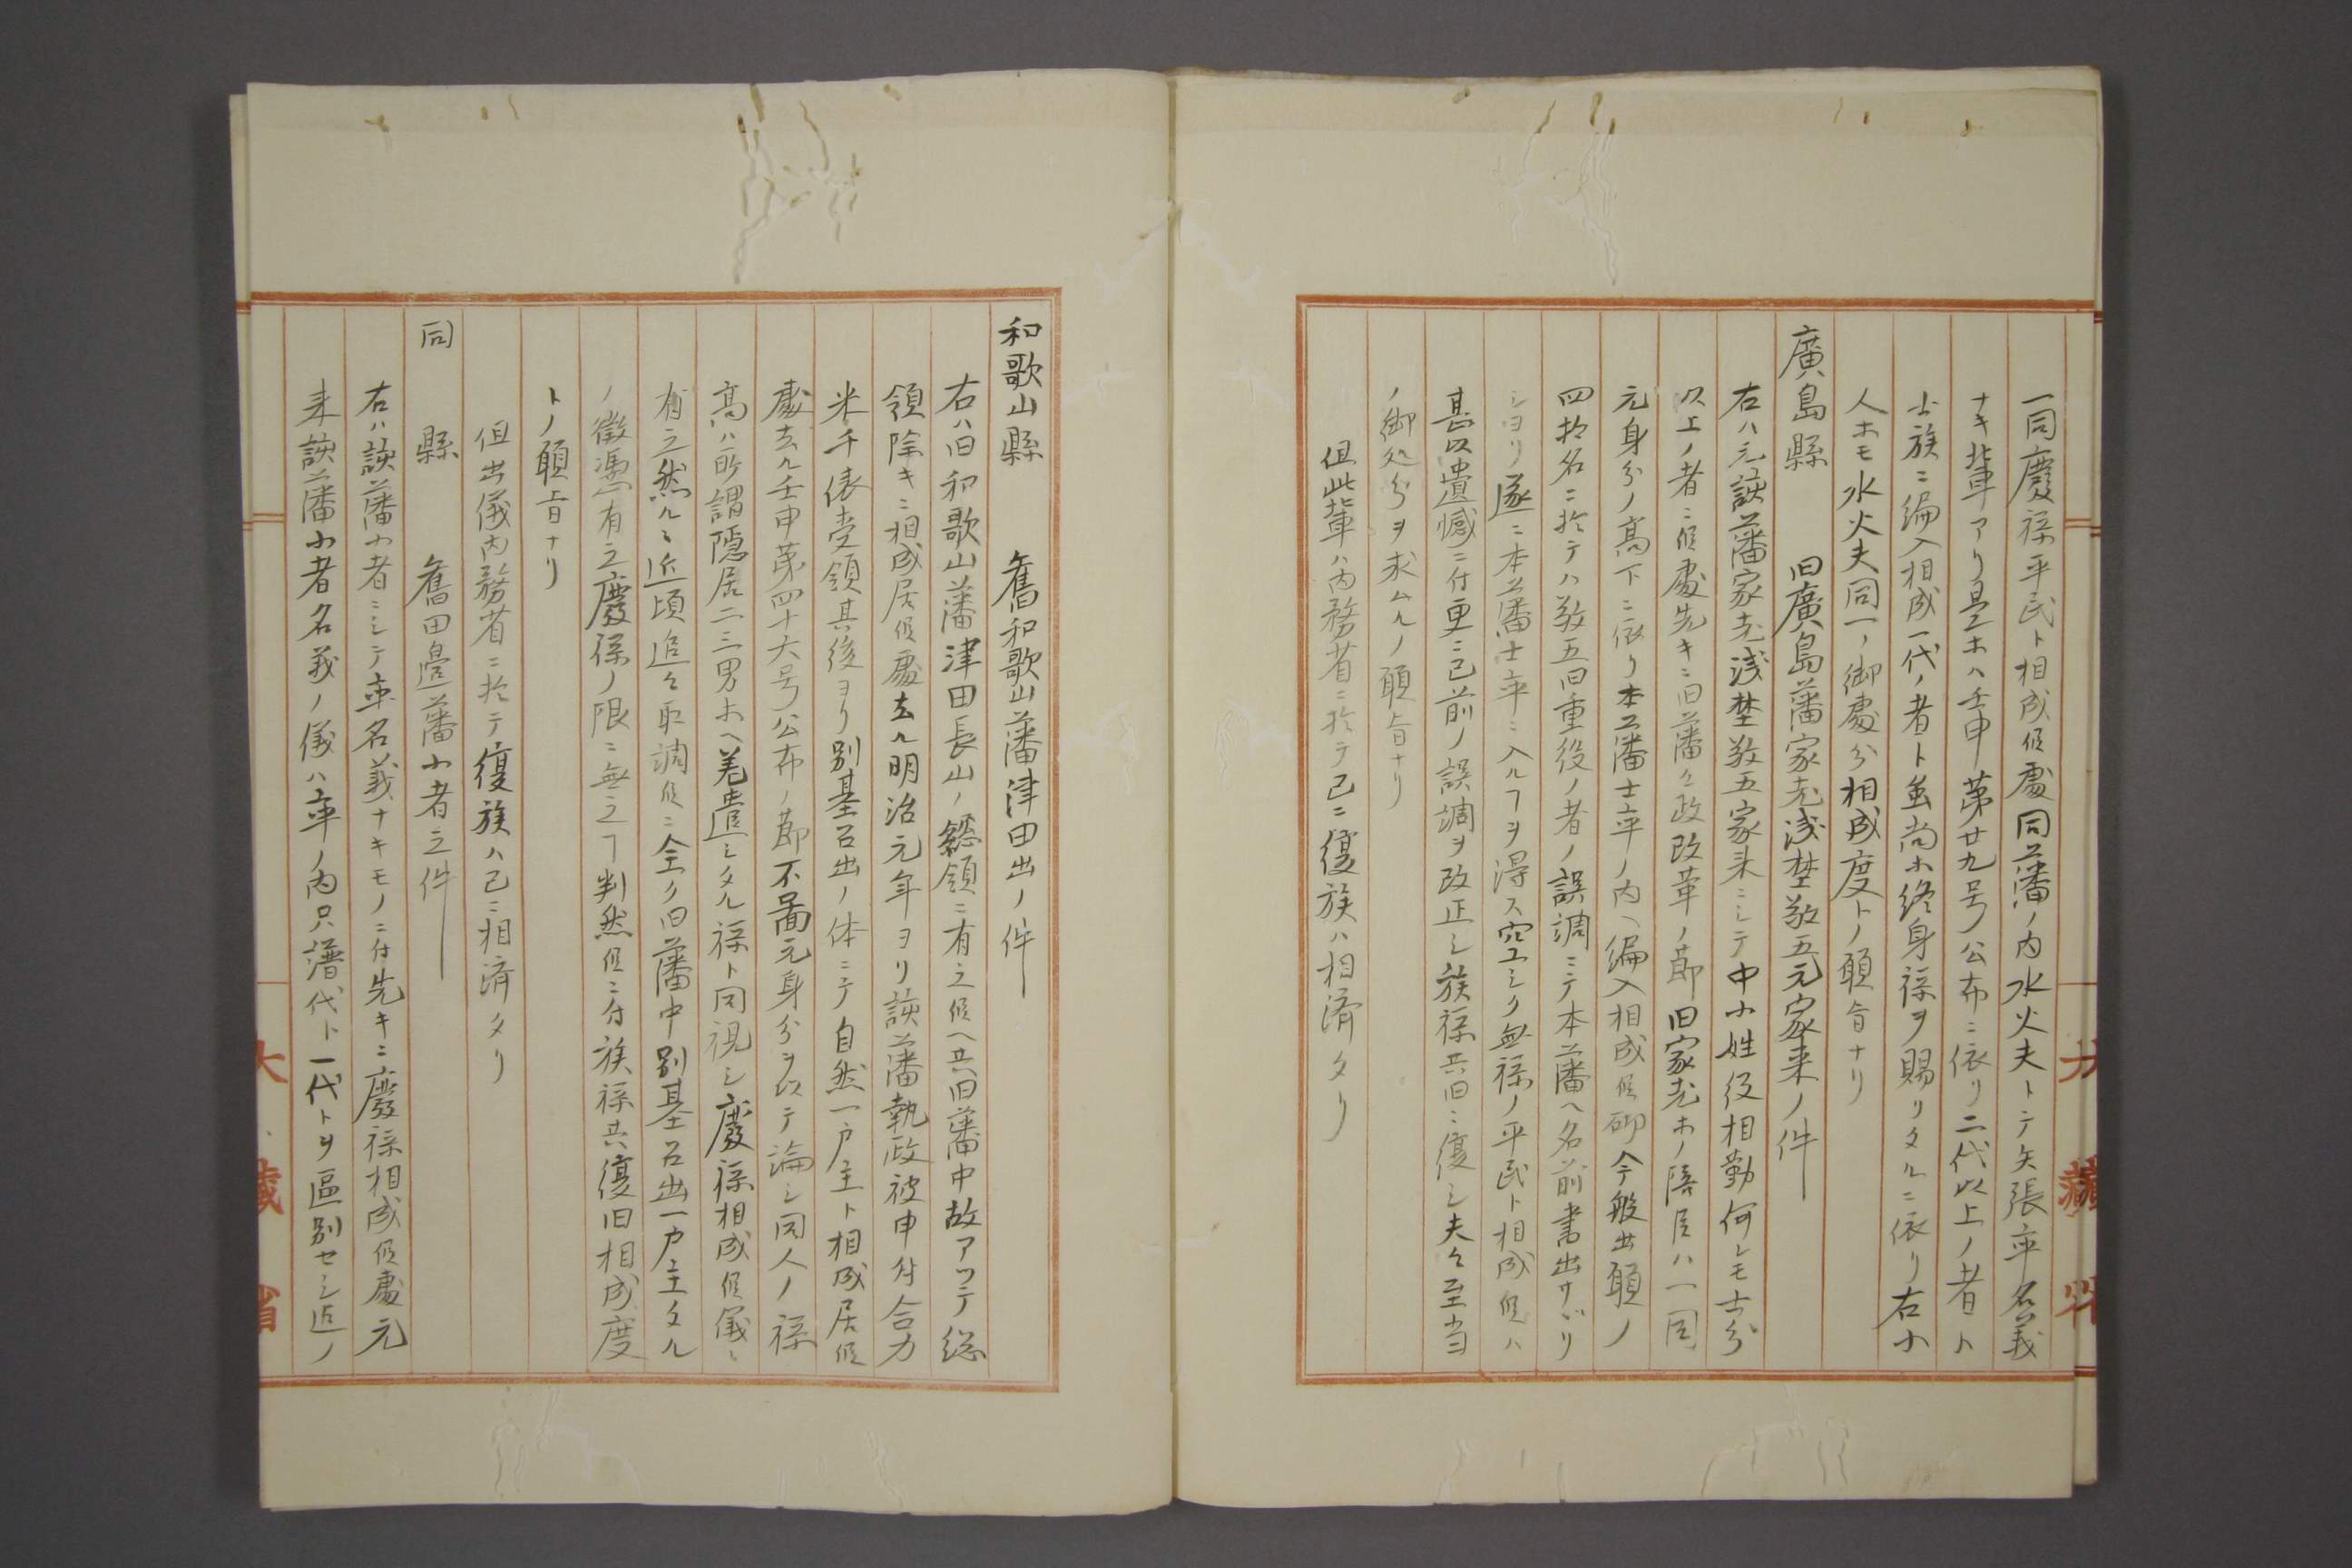 一同廢禄平民ト相成候處同藩ノ内水火夫トテ矢張卒名義
ナキ輩アリ是ホハ壬申第廿九号公布ニ依リ二代以上ノ者ト
士族ニ編入相成一代ノ者ト虽尚ホ終身禄ヲ賜リタルニ依リ右小
人ホモ水火夫同一ノ御處分相成度トノ願旨ナリ
廣島縣 旧廣島藩家老浅埜敬五元家来ノ件
右ハ元該藩家老浅埜敬五家来ニシテ中小姓役相勤何レモ士分
以上ノ者ニ候處先キニ旧藩々政改革ノ節旧家老ホノ陪臣ハ一同
元身分ノ高下ニ依リ本藩士卒ノ内ヘ編入相成候砌今般出願ノ
四拾名ニ於テハ敬五旧重役ノ者ノ誤調ニテ本藩ヘ名前書出サヾリ
シヨリ遂ニ本藩士卒ニ入ルヿヲ得ス空シク無禄ノ平民ト相成候ハ
甚以遺憾ニ付更ニ已前ノ誤調ヲ改正シ族禄共旧ニ復シ夫々至当
ノ御処分ヲ求ムルノ願旨ナリ
但此輩ハ内務省ニ於テ已ニ復族ハ相済タリ
大藏省
和歌山縣 舊和歌山藩津田出ノ件
右ハ旧和歌山藩津田長山ノ總領ニ有之候ヘ共旧藩中故アツテ総
領除キニ相成居候處去ル明治元年ヨリ該藩執政被申付合力
米千俵受領其後ヨリ別基召出ノ体ニテ自然一戸主ト相成居候
處去ル壬申第四十六号公布ノ節不図元身分ヲ以テ論シ同人ノ禄
高ハ所謂隠居二三男ホヘ差遣シタル禄ト同視シ廢禄相成候儀ニ
有之然ルニ近頃追々取調候ニ全ク旧藩中別基召出一戸主タル
ノ徴憑有之廢禄ノ限ニ無之ヿ判然候ニ付族禄共復旧相成度
トノ願旨ナリ
但出儀内務省ニ於テ復族ハ已ニ相済タリ
同 縣 舊田邉藩小者之件
右ハ該藩小者ニシテ卒名義ナキモノニ付先キニ廢禄相成候處元
来該藩小者名義ノ儀ハ卒ノ内只譜代ト一代トヲ區別セシ迄ノ
大藏省